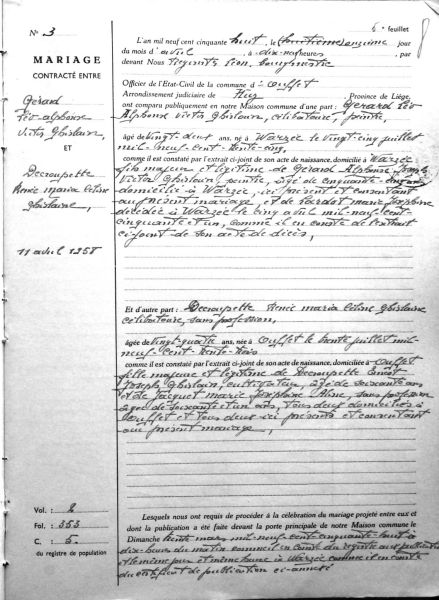 5e feuillet
N° 3
MARIAGE
CONTRACTÉ ENTRE
Gérard
Léo Alphonse
Victor Ghislain,
ET
Decroupette
Renée Maria Céline
Ghislaine,
11 avril 1958
L'an mil neuf cent cinquante huit, le onzième jour
du mois d'avril, à dix-neuf heures, par
devant Nous
Officier de l'État-Civil de la commune d'Ouffet
Arrondissement judiciaire de Huy, Province de Liége,
ont comparu publiquement en notre Maison commune d'une part : Gérard Léo
Alphonse Victor Ghislain, célibataire, peintre,
âgé de vingt-deux ans, né à Warzée le vingt cinq juillet
mil-neuf-cent-trente-cinq,
comme il est constaté par l'extrait ci-joint de son acte de naissance, domicilié à Warzée
fils majeur et légitime de Gérard Alphonse Joseph
Victor Ghislain peintre, âgé de cinquante-
domicilié à Warzée, ici présent et consentant
au présent mariage, et de Lardot Marie Joséphine
décédée à Warzée le cinq avril mil-neuf-cent-
cinquante et un, comme il en conste de l'extrait
ci-joint de son acte de décès,
Et d'autre part : Decroupette Renée Maria Céline Ghislaine
célibataire, sans profession,
âgée de vingt-quatre ans, née à Ouffet le trente juillet mil-
neuf-cent-trente-trois
comme il est constaté par l'extrait ci-joint de son acte de naissance, domiciliée à Ouffet
fille majeure et légitime de Decroupette Ernest
Joseph Ghislain, cultivateur, âgé de soixante ans
et de Jacquet Marie Joséphine Aline, sans profession
âgée de soixante et un ans, tous deux domiciliés à
Ouffet et tous deux ici présents et consentant
au présent mariage,
Vol. : 2
Fol. : 353
C. : 5.
du registre de population
Lesquels nous ont requis de procéder à la célébration du mariage projeté entre eux et
dont la publication a été faite devant la porte principale de notre Maison commune le
Dimanche trente mars mil-neuf-cent-cinquante-huit à
dix heures du matin comme il en conste du registre aux publications
et le même jour et même heure à Warzée comme il en conste
du certificat de publication ci-annexé